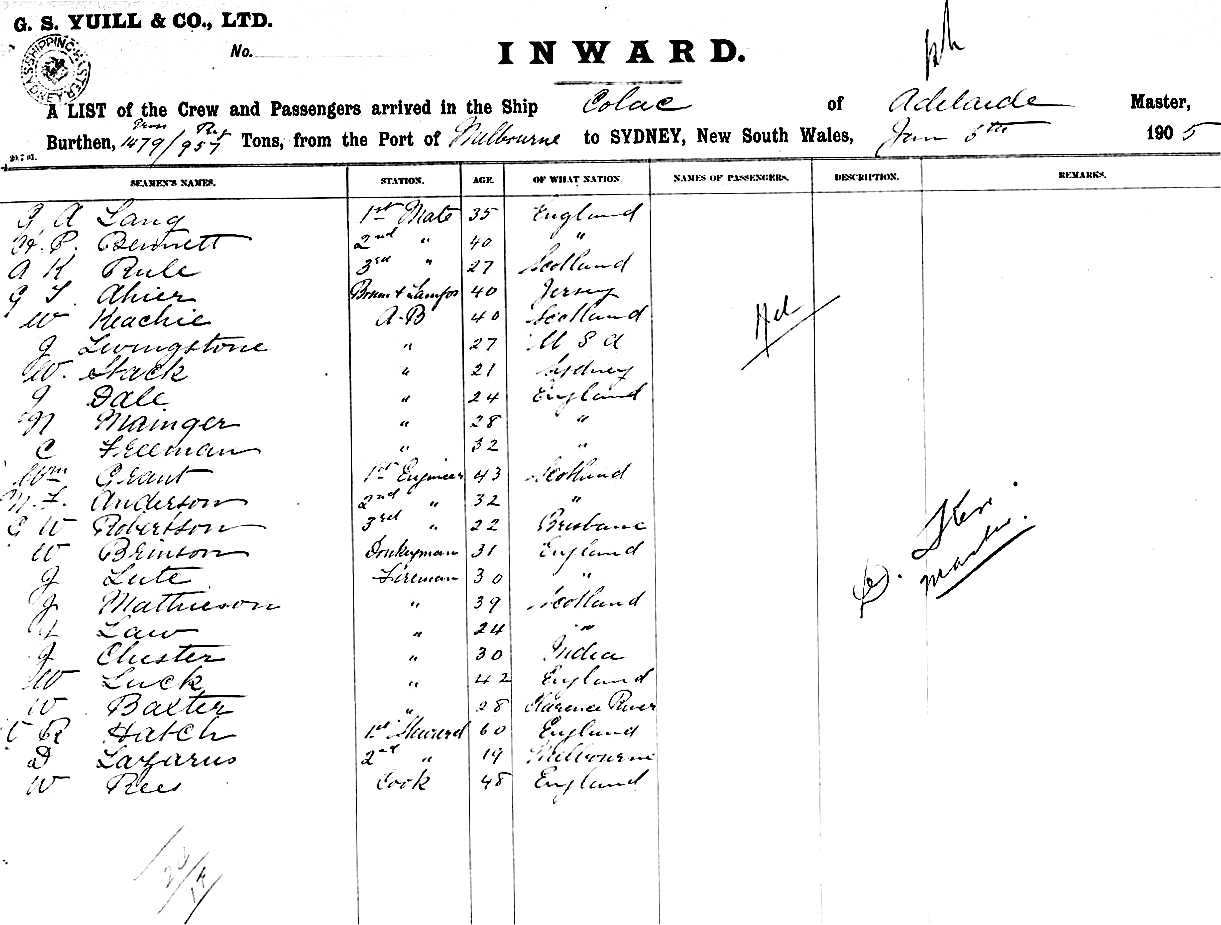 G. S. YUILL & CO., LTD.
No.
INWARD.
SHIPPING MASTER SYDNEY
A LIST of the Crew and Passengers arrived in the Ship Colac of Adelaide Master,
Burthen, Gross 1479/ Net 957 Tons, from the Port of Melbourne to SYDNEY, New South Wales, Jan 5th 1905
SEAMEN'S NAMES. STATION. AGE. OF WHAT NATION. NAMES OF PASSENGERS. DESCRIPTION. REMARKS.
G A Lang 1st Mate 35 England
H. P. Bennett 2nd " 40 "
A K Rule 3rd " 27 Scotland
G T Ahier Bosun & Lamps 40 Jersey
W Keachie A-B 40 Scotland
J Livingstone " 27 U S A
W. Stack " 21 Sydney
J Dale " 24 England
N Mainger " 28 "
C Freeman " 32 "
Wm Grant 1st Engineer 43 Scotland
Anderson 2nd " 32 "
W Robertson 3rd " 22 Brisbane
W Brinson Donkeyman 31 England
J Lute Fireman 30 "
J Mathieson " 39 Scotland
Law " 24 "
J Chester " 30 India
W Luck " 42 England
W Baxter " 28 Clarence River
R Hatch 1st Steward 60 England
D Lazarus 2nd " 19 Melbourne
W Rees Cook 48 England
Nil
Master.